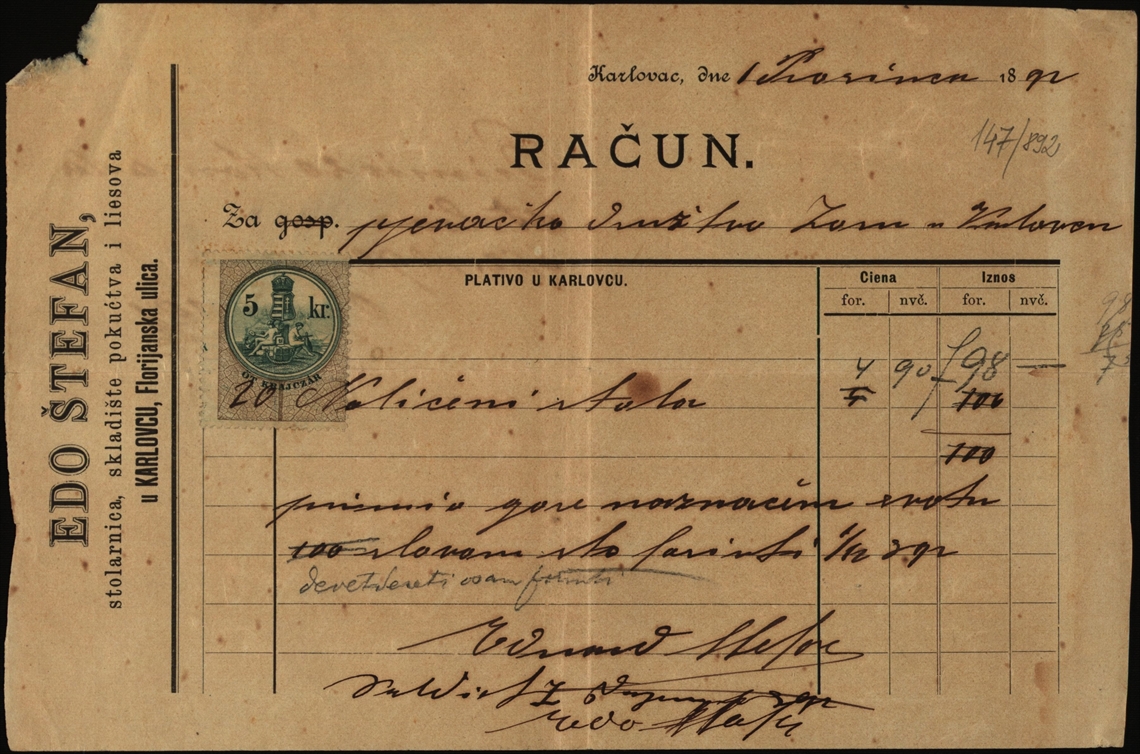 EDO ŠTEFAN,
stolarnica, skladište pokućtva i liesova
u KARLOVCU, Florijanska ulica.
Karlovac, dne 1 Prosinca 1892
147/892
RAČUN.
Za gosp. pjevačko družtvo Zora u Karlovcu
PLATIVO U KARLOVCU.
Ciena Iznos
for. nvč. for. nvč.
5 kr.
ÖT KRAJCZÁR
4 90 f 98 —
20 Naličeni stola 5 100
100
primio gore naznačenu svotu
100 slovom sto forinti 1/12 892
devetdeseti osam forinti
Eduard Štefan
Edo Štefan